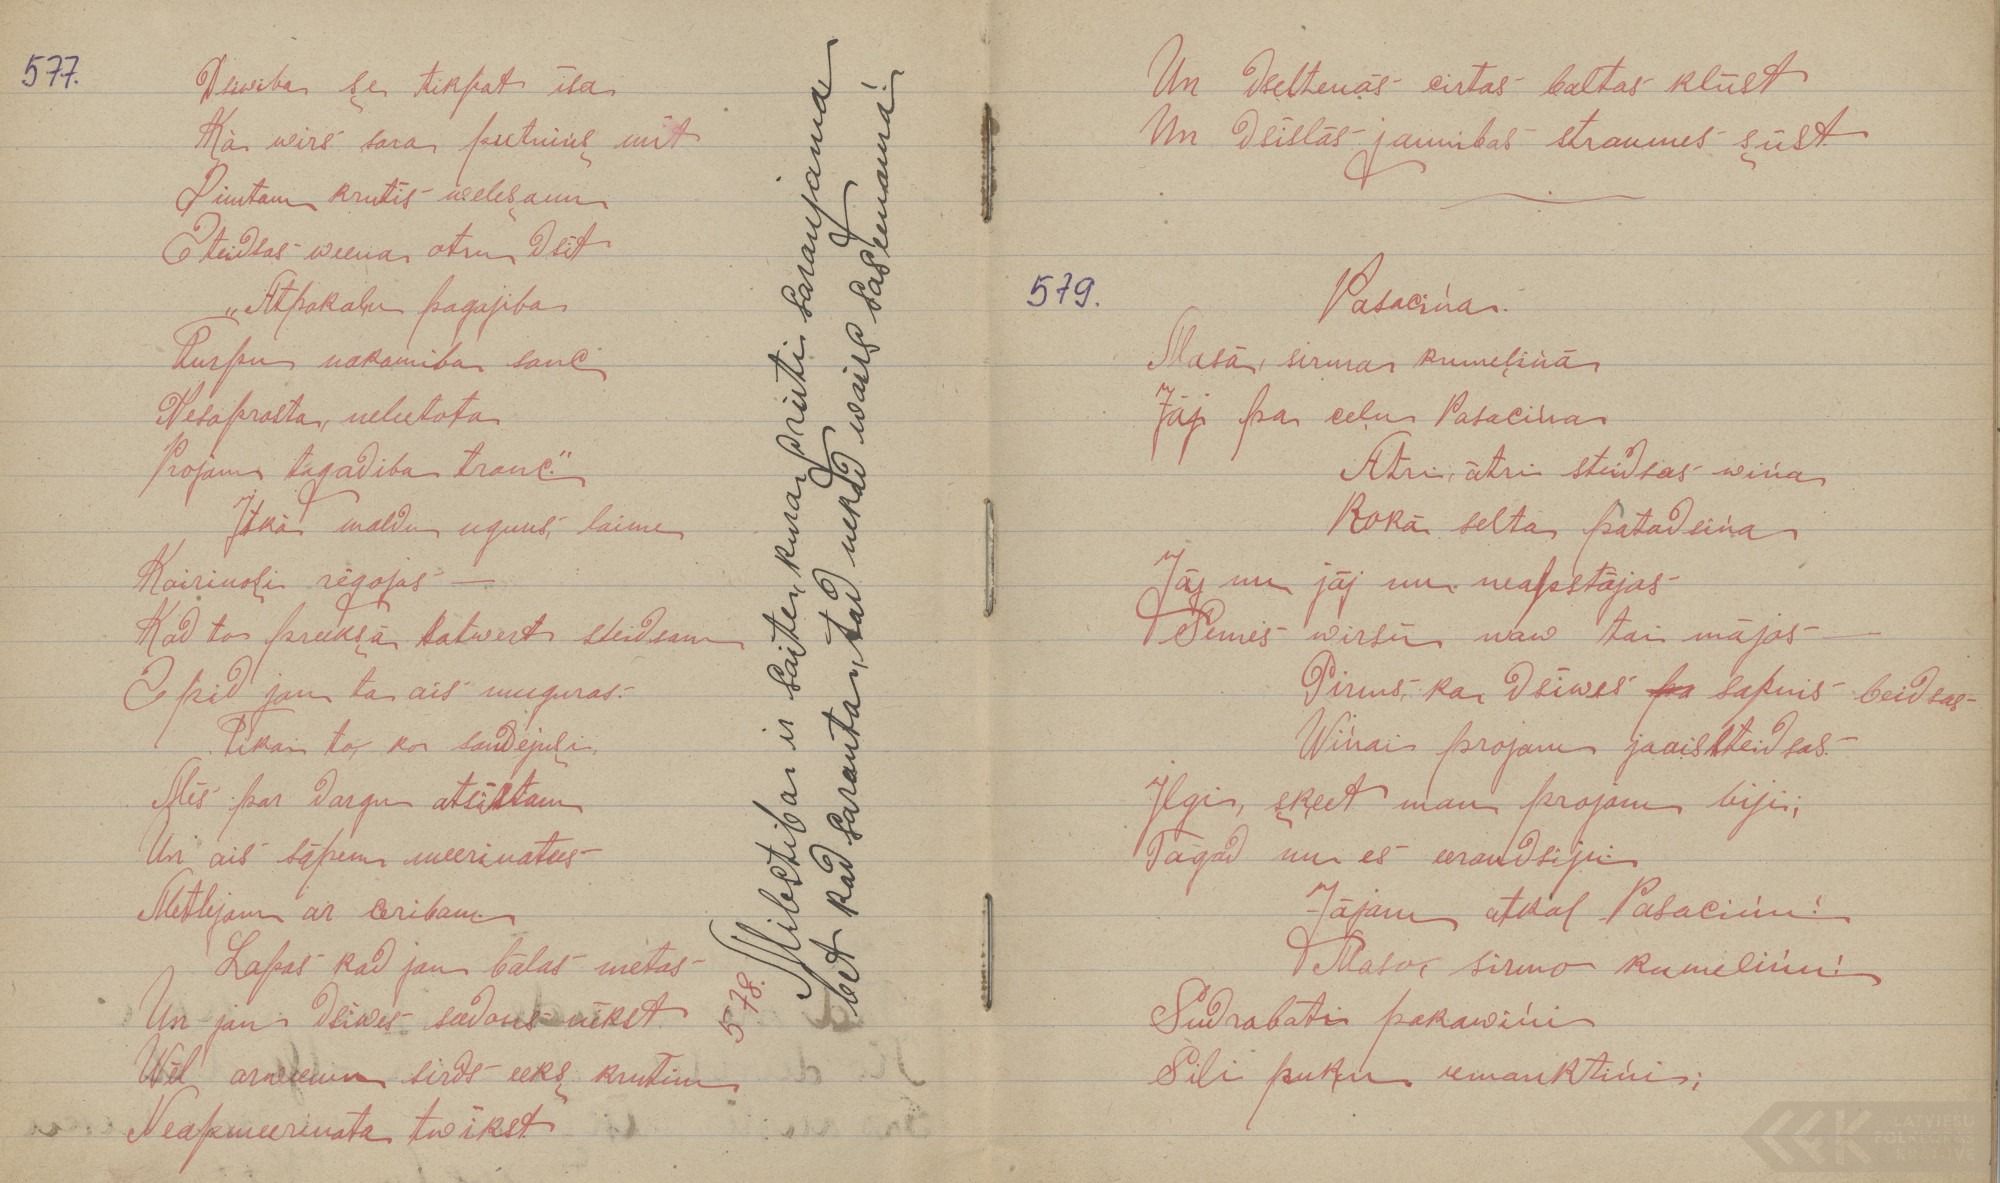 577.
Dsiwiba še tikpat īsa
Kā wirs sara putniņš mīt
Rimtam krutīs welešanu
Steidsas weena otru dsīt
„Atpakaļu pagajiba
Turpu nakamiba sauc
Nesaprasta, neleetota
Projam tagadiba trauc."
Itkā maldu uguns, laime
Kairinoši rēgojas —
Kad to preekšā tatwert steidsam
Spid jau ta ais muguras.
Tikai to, ko saudejuši,
Mēs par dargu atsistam
Un ais sāpem meerinatees
Metlejam ar ceribam.
Lapas kad jau bālas metas
Un jau dsiwes seedons nīkst
Wēl arweenu sirds eekš krutim
Neapmeerinata twīkst.
578.
Milestiba ir saite, kura druti saraujama
bet kad sarauta, tad nekad wairs saseenama!
Un dseltenās cirtas baltas klūst
Un dsīslās jaunibas straumes šūst.
579.
Pasaciņa.
Masā, sirma kumeļiņā
Jāj pa ceļu Pasaciņa
Ātri, ātri steidsas wiņa
Rokā selta pātadsiņa
Jāj nu jāj nu neapstājas
Semes wirsū naw tai mājas —
Pirms, ka dsiwes sapnis beidsas
Wiņai projam jaaissteidsas.
Ilgi, šķeet man projam biji;
Tagad nu es eeraudsiju
Jājam atkal Pasaciņu!
Maso, sirmo kumeliņu!
Sudraboti pakawiņi
Sili puķu eemauktiņi;
LATVIEŠU
FOLKLORAS
KRĀTUVE